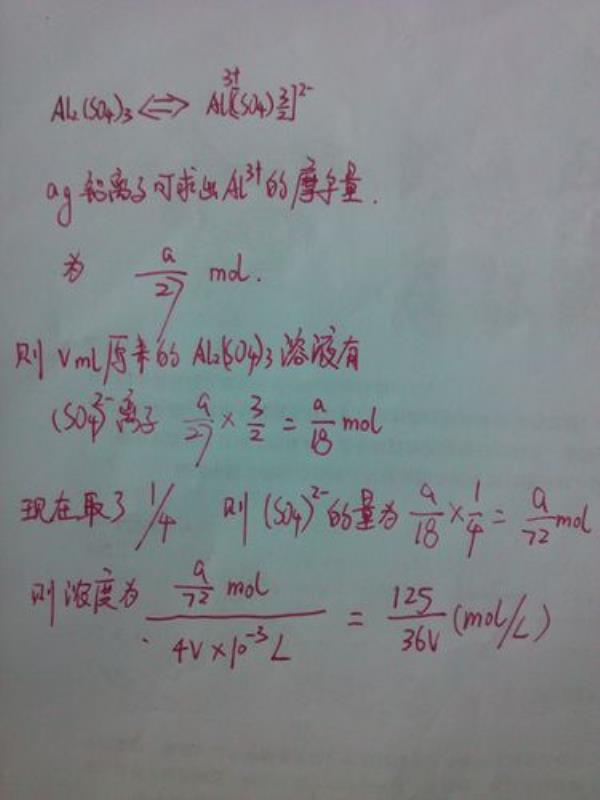 Al₂(SO₄)₃ ⇔ Al³⁺[(SO₄)3/2]²⁻
a g 铝离子可求出Al³⁺的摩尔量.
为 a/27 mol.
则 Vml原来的Al₂(SO₄)₃溶液有
(SO₄)²⁻离子 a/27 × 3/2 = a/18 mol
现在取了 1/4 则(SO₄)²⁻的量为 a/18 × 1/4 = a/72 mol
则浓度为 a/72 mol / 4V×10⁻³L = 125/36V (mol/L)